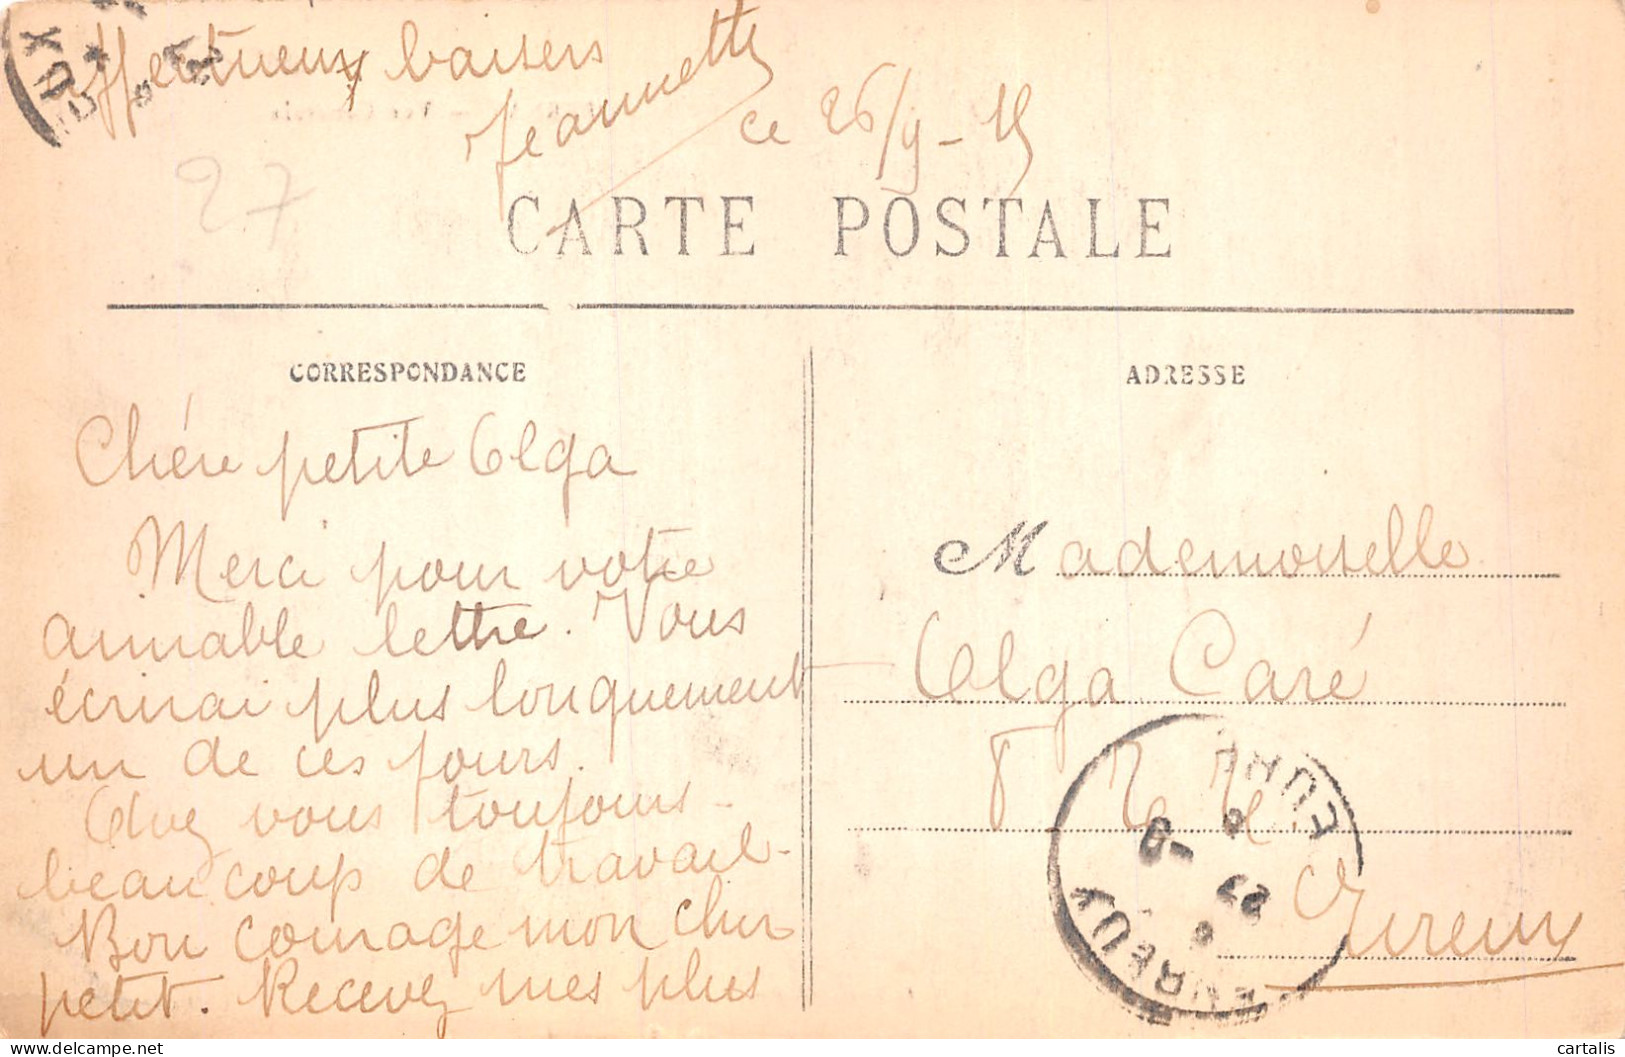 affectueux baisers
Jeannette
ce 26/9-15
27
CARTE POSTALE
CORRESPONDANCE
ADRESSE
Chére petite Olga
Merci pour votre
aimable lettre. Vous
écrirai plus longuement
un de ces jours.
Avez vous toujours
beaucoup de travail.
Bon courage mon cher
petit. Recevez mes plus
Mademoiselle
Olga Caré
Evreux
EVREUX
EURE
27
cartalis